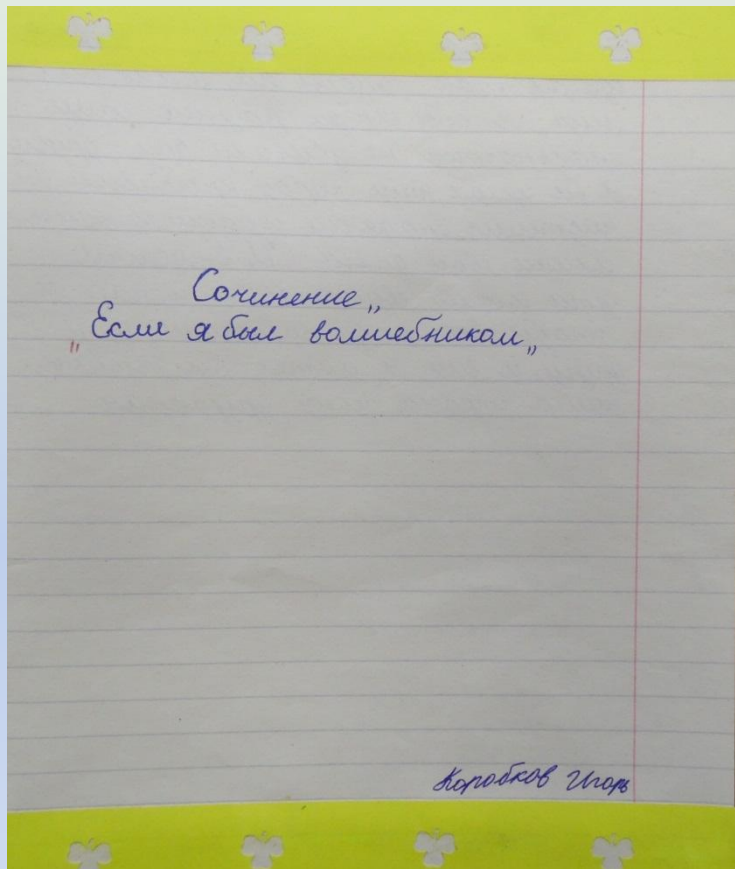 Сочинение„
"Если я был волшебником„
Коробков Игорь